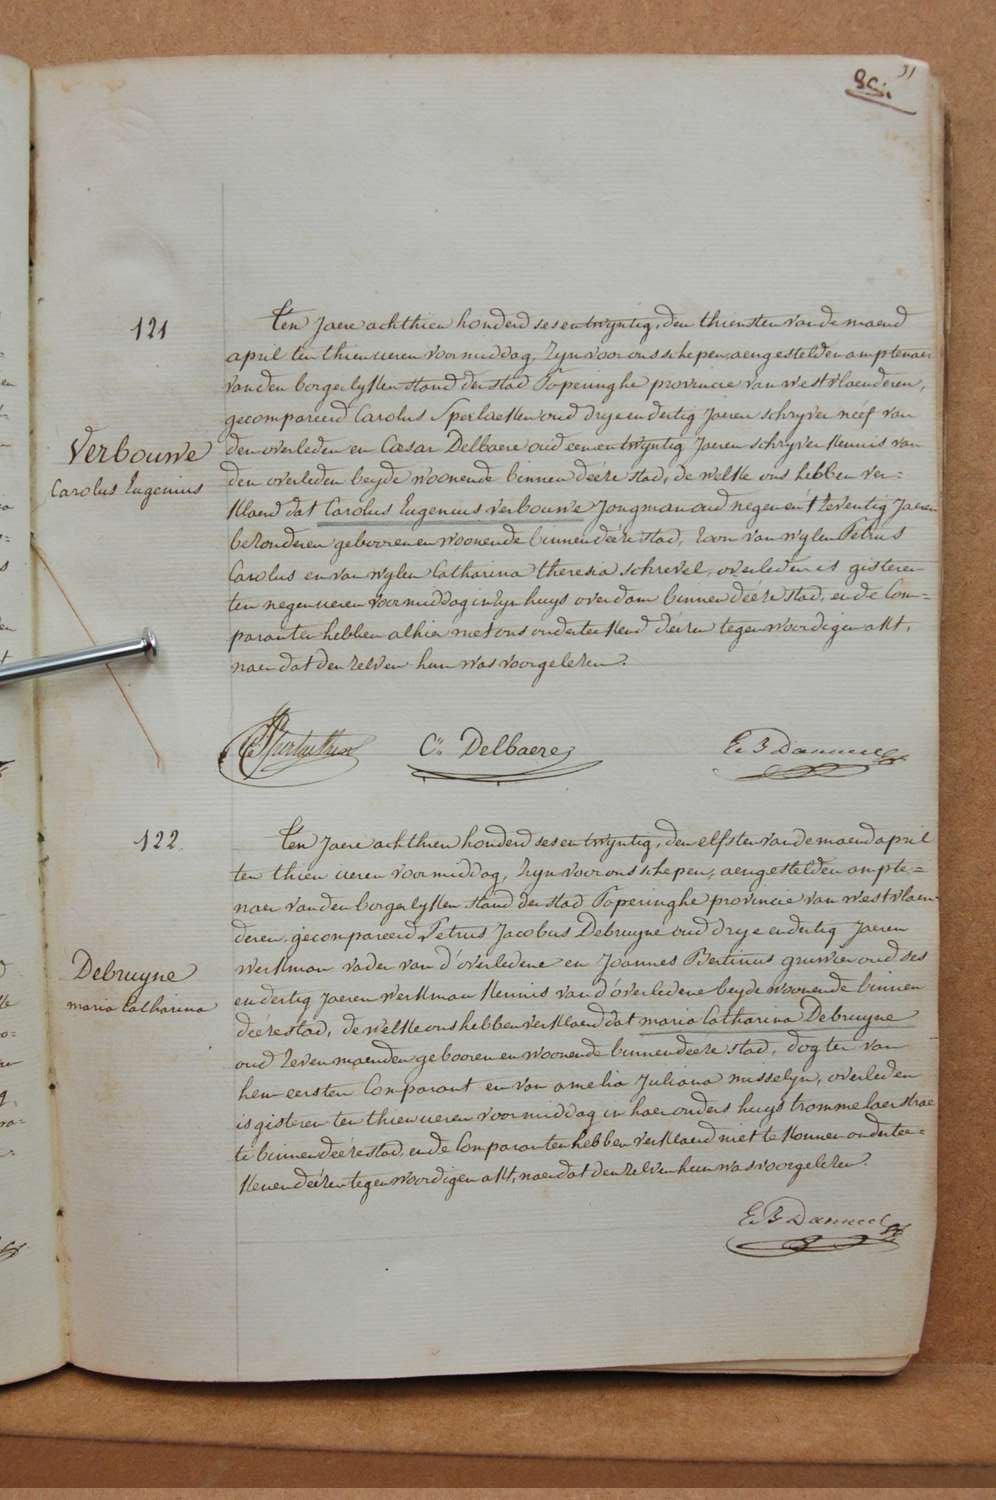 31
121
Verbouwe
Carolus Eugenius
Ten Jaere achthien honderd sesentwyntig, den thiensten van de maend
april ten thien ueren voormiddag, Zyn voor ons schepen, aengestelden amptenaer
van den borgerlyken stand der stad Poperinghe provincie van westvlaenderen,
gecompareerd Carolus Sperlaeken oud drye endertig Jaeren schryver néef van
den overleden en Cæsar Delbaere oud eenentwyntig Jaeren schryver kennis van
den overleden beyde woonende binnen déeze stad, de welke ons hebben ver=
klaerd dat Carolus Eugenius verbouwe Jongman oud negen en t'zeventig Jaeren
bezonderen gebooren en woonende binnen déeze stad, zoon van wylen Petrus
Carolus en van wylen Catharina theresia schrevel, overleden is gisteren
ten negen ueren voormiddag in zyn huys overdam binnen déeze stad, en de Com=
paranten hebben alhier met ons onderteekend deezen tegenwoordigen akt,
naer dat den zelven hun was voorgelezen.
Cn Delbaere
E. B Danneel
122.
Debruyne
maria Catharina
Ten Jaere achthien honderd sesentwyntig, den elfsten van de maend april
ten thien ueren voormiddag, Zyn voor ons schepen, aengestelden ampte=
naer van den borgerlyken stand der stad Poperinghe provincie van westvlaen=
deren, gecompareerd Petrus Jacobus Debruyne oud drye endertig Jaeren
werkman vader van d'overledene en Joannes Bertinus gruwier oud ses
endertig Jaeren werkman kennis van d'overledene beyde woonende binnen
déeze stad, de welke ons hebben verklaerd dat maria Catharina Debruyne
oud zeven maenden gebooren en woonende binnen deeze stad, dogter van
hem eersten Comparant en van amelia Juliana misselyn, overleden
is gisteren ten thien ueren voormiddag in haer ouders huys trommelaerstrae
te binnen déeze stad, en de Comparanten hebben verklaerd niet te konnen ondertee=
kenen déezen tegenwoordigen akt, naer dat den zelven hun was voorgelezen.
E. B Danneel